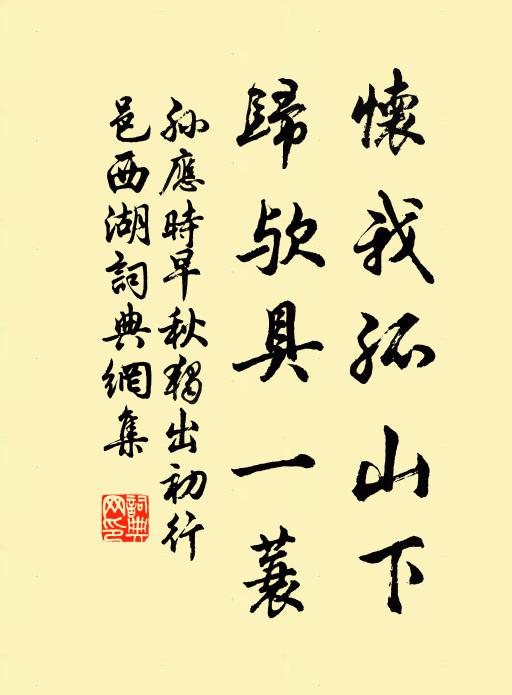 懷我孤山下
歸欤具一蓑
孙應時早秋獨出初行
邑西湖詞典網集
詞典网印